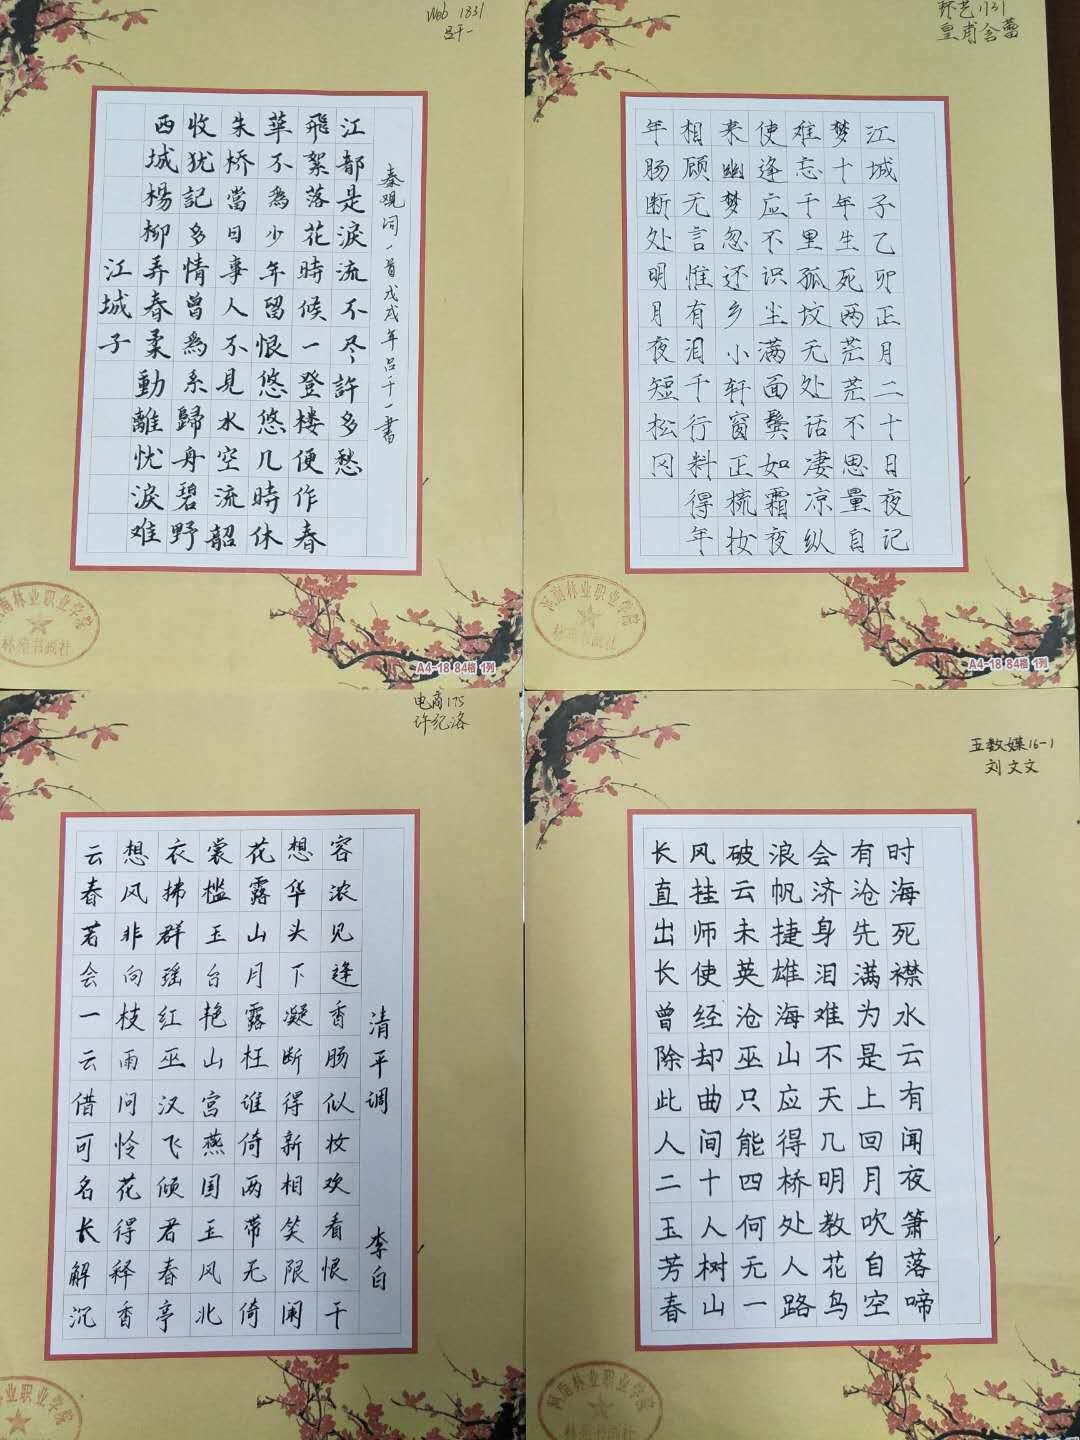 Web 1831
吕千一
江城子
西城楊柳弄春柔動離忧淚难
收犹記多情曾為系歸舟碧野
朱桥當日事人不見水空流韶
華不為少年留恨悠悠几時休
飛絮落花時候一登楼便作春
江都是淚流不尽許多愁
秦观词一首戊戌年吕千一書
林苑书画社
A4-18 84格 1列
环艺1131
皇甫含蕾
江城子乙卯正月二十日夜记
梦十年生死两茫茫不思量自
难忘千里孤坟无处话凄凉纵
使逢应不识尘满面鬓如霜夜
来幽梦忽还乡小轩窗正梳妆
相顾无言惟有泪千行料得年
年肠断处明月夜短松冈
河南林业职业学院
林苑书画社
A4-18 84格 1列
电商175
许纪洛
云想衣裳花想容
春风拂槛露华浓
若非群玉山头见
会向瑶台月下逢
一枝红艳露凝香
云雨巫山枉断肠
借问汉宫谁得似
可怜飞燕倚新妆
名花倾国两相欢
长得君王带笑看
解释春风无限恨
沉香亭北倚阑干
清平调 李白
五数媒16-1
刘文文
长风破浪会有时
直挂云帆济沧海
出师未捷身先死
长使英雄泪满襟
曾经沧海难为水
除却巫山不是云
此曲只应天上有
人间能得几回闻
二十四桥明月夜
玉人何处教吹箫
芳树无人花自落
春山一路鸟空啼
河南林业职业学院
林苑书画社